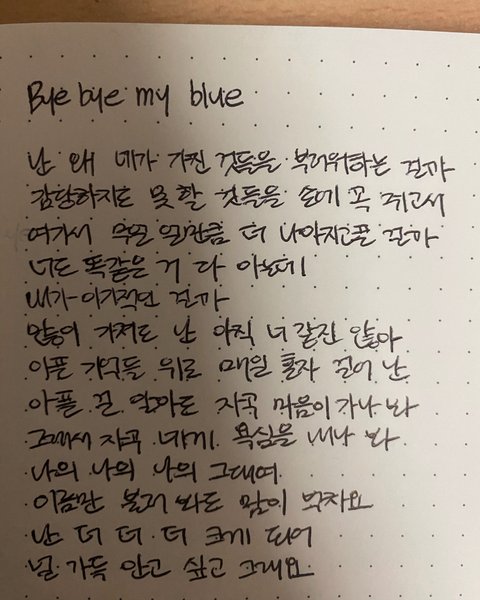 Bye bye my blue
난 왜 네가 가진 것들을 부러워하는 걸까
감당하지도 못 할 것들을 손에 꼭 쥐고서
여기서 무얼 얼만큼 더 나아지고픈 걸까
너도 똑같은 거 다 아는데
내가 이기적인 걸까
많이 가져도 난 아직 너 같진 않아
아픈 기억들 위로 매일 혼자 걸어 난
아플 걸 알아도 자꾸 마음이 가나 봐
그래서 자꾸 네게 욕심을 내나 봐
나의 나의 나의 그대여
이름만 불러 봐도 맘이 벅차요
난 더 더 더 크게 되어
널 가득 안고 싶고 그래요